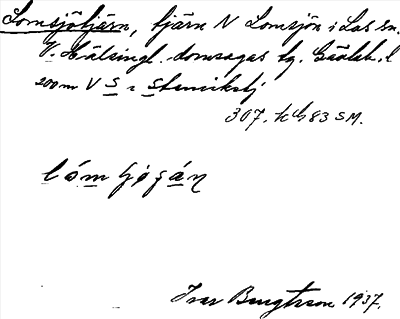 Lomsjötjärn, tjärn N Lomsjön i Los sn.
V. Hälsingl. domsagas tg.
200 m V S i Stenvikstj
307. h 83 SM.
lóm
Ivar Bengtsson 1937.